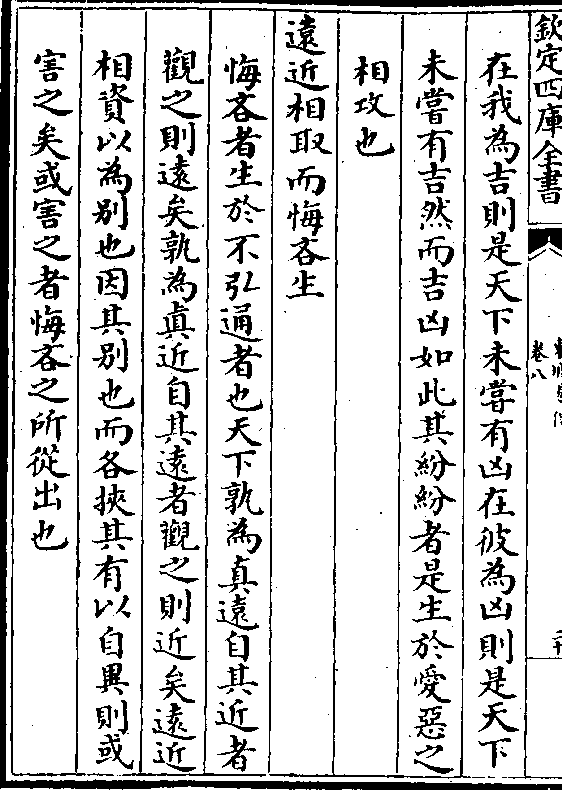 欽定四庫全書
卷八
在我為吉則是天下未嘗有凶在彼為凶則是天下
未嘗有吉然而吉凶如此其紛紛者是生於愛惡之
相攻也
遠近相取而悔吝生
悔吝者生於不弘通者也天下孰為真遠自其近者
觀之則遠矣孰為真近自其遠者觀之則近矣遠近
相資以為别也因其别也而各挾其有以自異則或
害之矣或害之者悔吝之所從出也